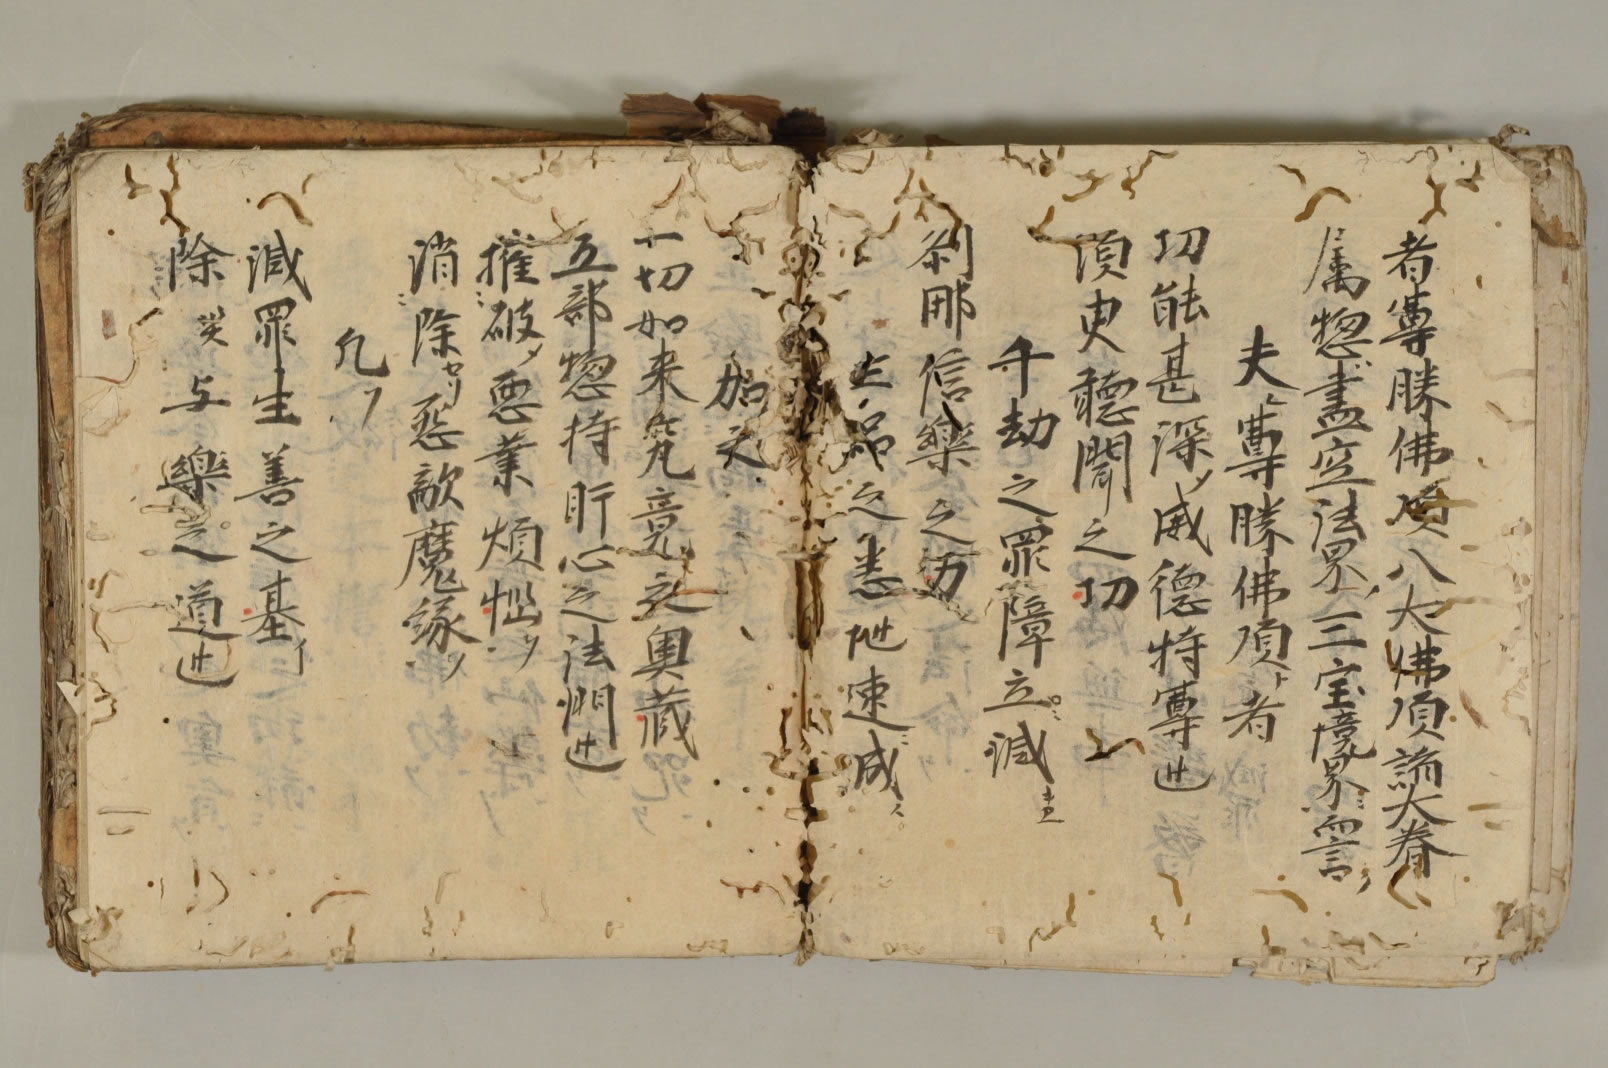 者尊勝佛頂八大佛頂諸大眷
属惣盡空法界、三宝境界ニ而言
夫尊勝佛頂者
功能甚深威德特尊也
須臾聽聞之功
千劫之罪障立滅
刹那信樂之力
七品之悪地速滅
加之
一切如来究竟之奥藏
五部惣持肝心之法門也
摧破ヲ悪業煩惱ヲ
消除セリ惡敵魔緣ヲ
凡ソ
滅罪生善之基
除災与樂之道也